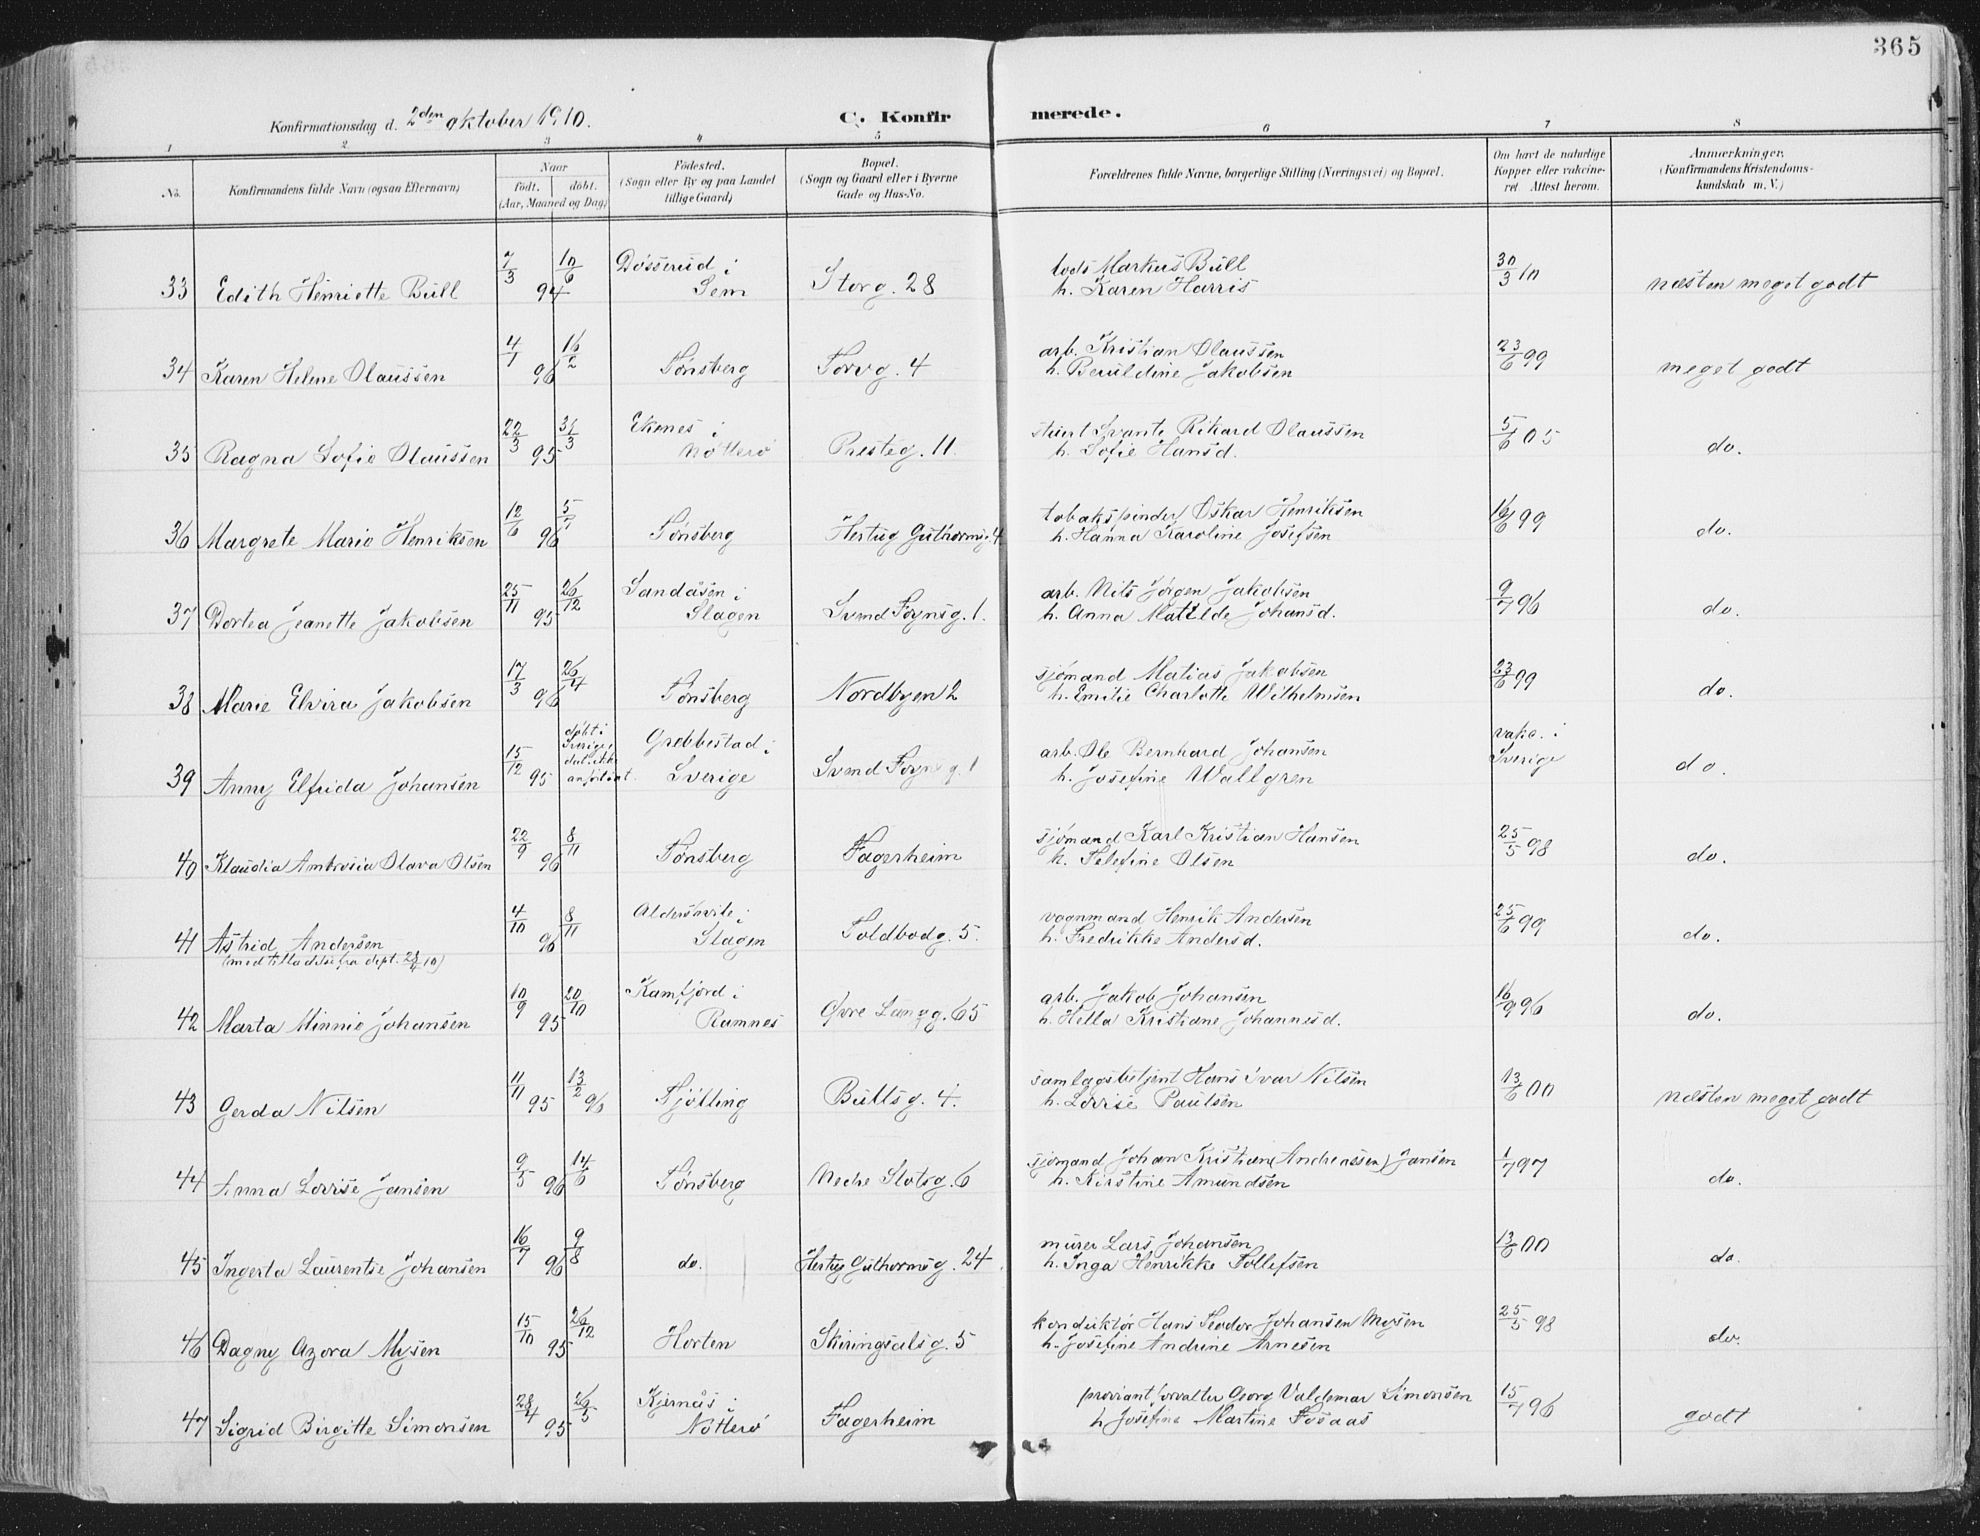 365
Konfirmationsdag d. 2den oktober 1910.
C. Konfirmerede.
1 2 3 4 5 6 7 8
No.
Konfirmandens fulde Navn (ogsaa Efternavn)
Naar
født. døbt.
(Aar, Maaned og Dag)
Fødested.
(Sogn eller By og paa Landet
tillige Gaard)
Bopæl.
(Sogn og Gaard eller i Byerne
Gade og Hus-No.
Forældrenes fulde Navne, borgerlige Stilling (Næringsvei) og Bopæl.
Om havt de naturlige
Kopper eller vakcine-
ret. Attest herom.
Anmærkninger.
(Konfirmandens Kristendoms-
kundskab m. V.)
33 Edith Henriette Bull 7/3 94 10/6 Døsserud i Sem Storg. 28 lods Markus Bull
h. Karen Harris 30/3 10 næsten meget godt
34 Karen Helene Olaussen 4/1 96 16/2 Tønsberg Torvg. 4 arb. Kristian Olaussen
h. Beruldine Jakobsen 23/6 99 meget godt
35 Ragna Sofie Olaussen 22/3 95 31/3 Ekenes i Nøtterø Presteg. 11. stuert Svante Rikard Olaussen
h. Sofie Hansd. 5/6 05 do.
36 Margrete Marie Henriksen 12/6 96 5/7 Tønsberg Hertug Guthormsg. 4 tobakspinder Oskar Henriksen
h. Hanna Karoline Josefsen 16/6 99 do.
37 Dortea Jeanette Jakobsen 25/11 95 26/12 Sandåsen i Slagen Svend Foynsg. 1. arb. Nils Jørgen Jakobsen
h. Anna Matilde Johansd. 9/7 96 do.
38 Marie Elvira Jakobsen 17/3 96 26/4 Tønsberg Nordbyen 2 sjømand Matias Jakobsen
h. Emilie Charlotte Wilhelmsen 23/6 99 do.
39 Anny Elfrida Johansen 15/12 95 døbt i
Sverige,
dat. ikke
anført i att. Grebbestad i Sverige Svend Foyns g. 1 arb. Ole Bernhard Johansen
h. Josefine Wallgren vakc. i
Sverige do.
40 Klaudia Ambrosia Olava Olsen 22/9 96 8/11 Tønsberg Fagerheim sjømand Karl Kristian Hansen
h. Telefine Olsen 25/5 98 do.
41 Astrid Andersen
(med tilladelse fra dept. 10) 4/10 96 8/11 i Slagen Toldbodg. 5. vognmand Henrik Andersen
h. Fredrikke Andersd. 25/6 99 do.
42 Marta Minnie Johansen 10/9 95 20/10 Kamfjord i Ramnes Øvre Langg. 65 arb. Jakob Johansen
h. Hella Kristiane Johannesd. 16/9 96 do.
43 Gerda Nilsen 11/11 95 13/2 96 Tjølling Bullsg. 4. samlagsbetjent Hans Ivar Nilsen
h. Lovise Paulsen 13/6 00 næsten meget godt
44 Anna Lovise Jansen 9/5 96 14/6 Tønsberg Nedre Slotsg. 6 sjømand Johan Kristian (Andreassen) Jansen
h. Kirstine Amundsen 1/7 97 do.
45 Ingerta Laurentse Johansen 16/7 96 9/8 do. Hertug Guthormsg. 24 murer Lars Johansen
h. Inga Henrikke Tollefsen 13/6 00 do.
46 Dagny Azora Mysen 15/10 95 26/12 Horten Skiringsalsg. 5 konduktør Hans Teodor Johansen Mysen
h. Josefine Andrine Arnesen 25/5 98 do.
47 Sigrid Birgitte Simonsen 28/4 95 26/5 Kjernås i Nøtterø Fagerheim proviantforvalter Georg Valdemar Simonsen
h. Josefine Martine Fosaas 15/7 96 godt